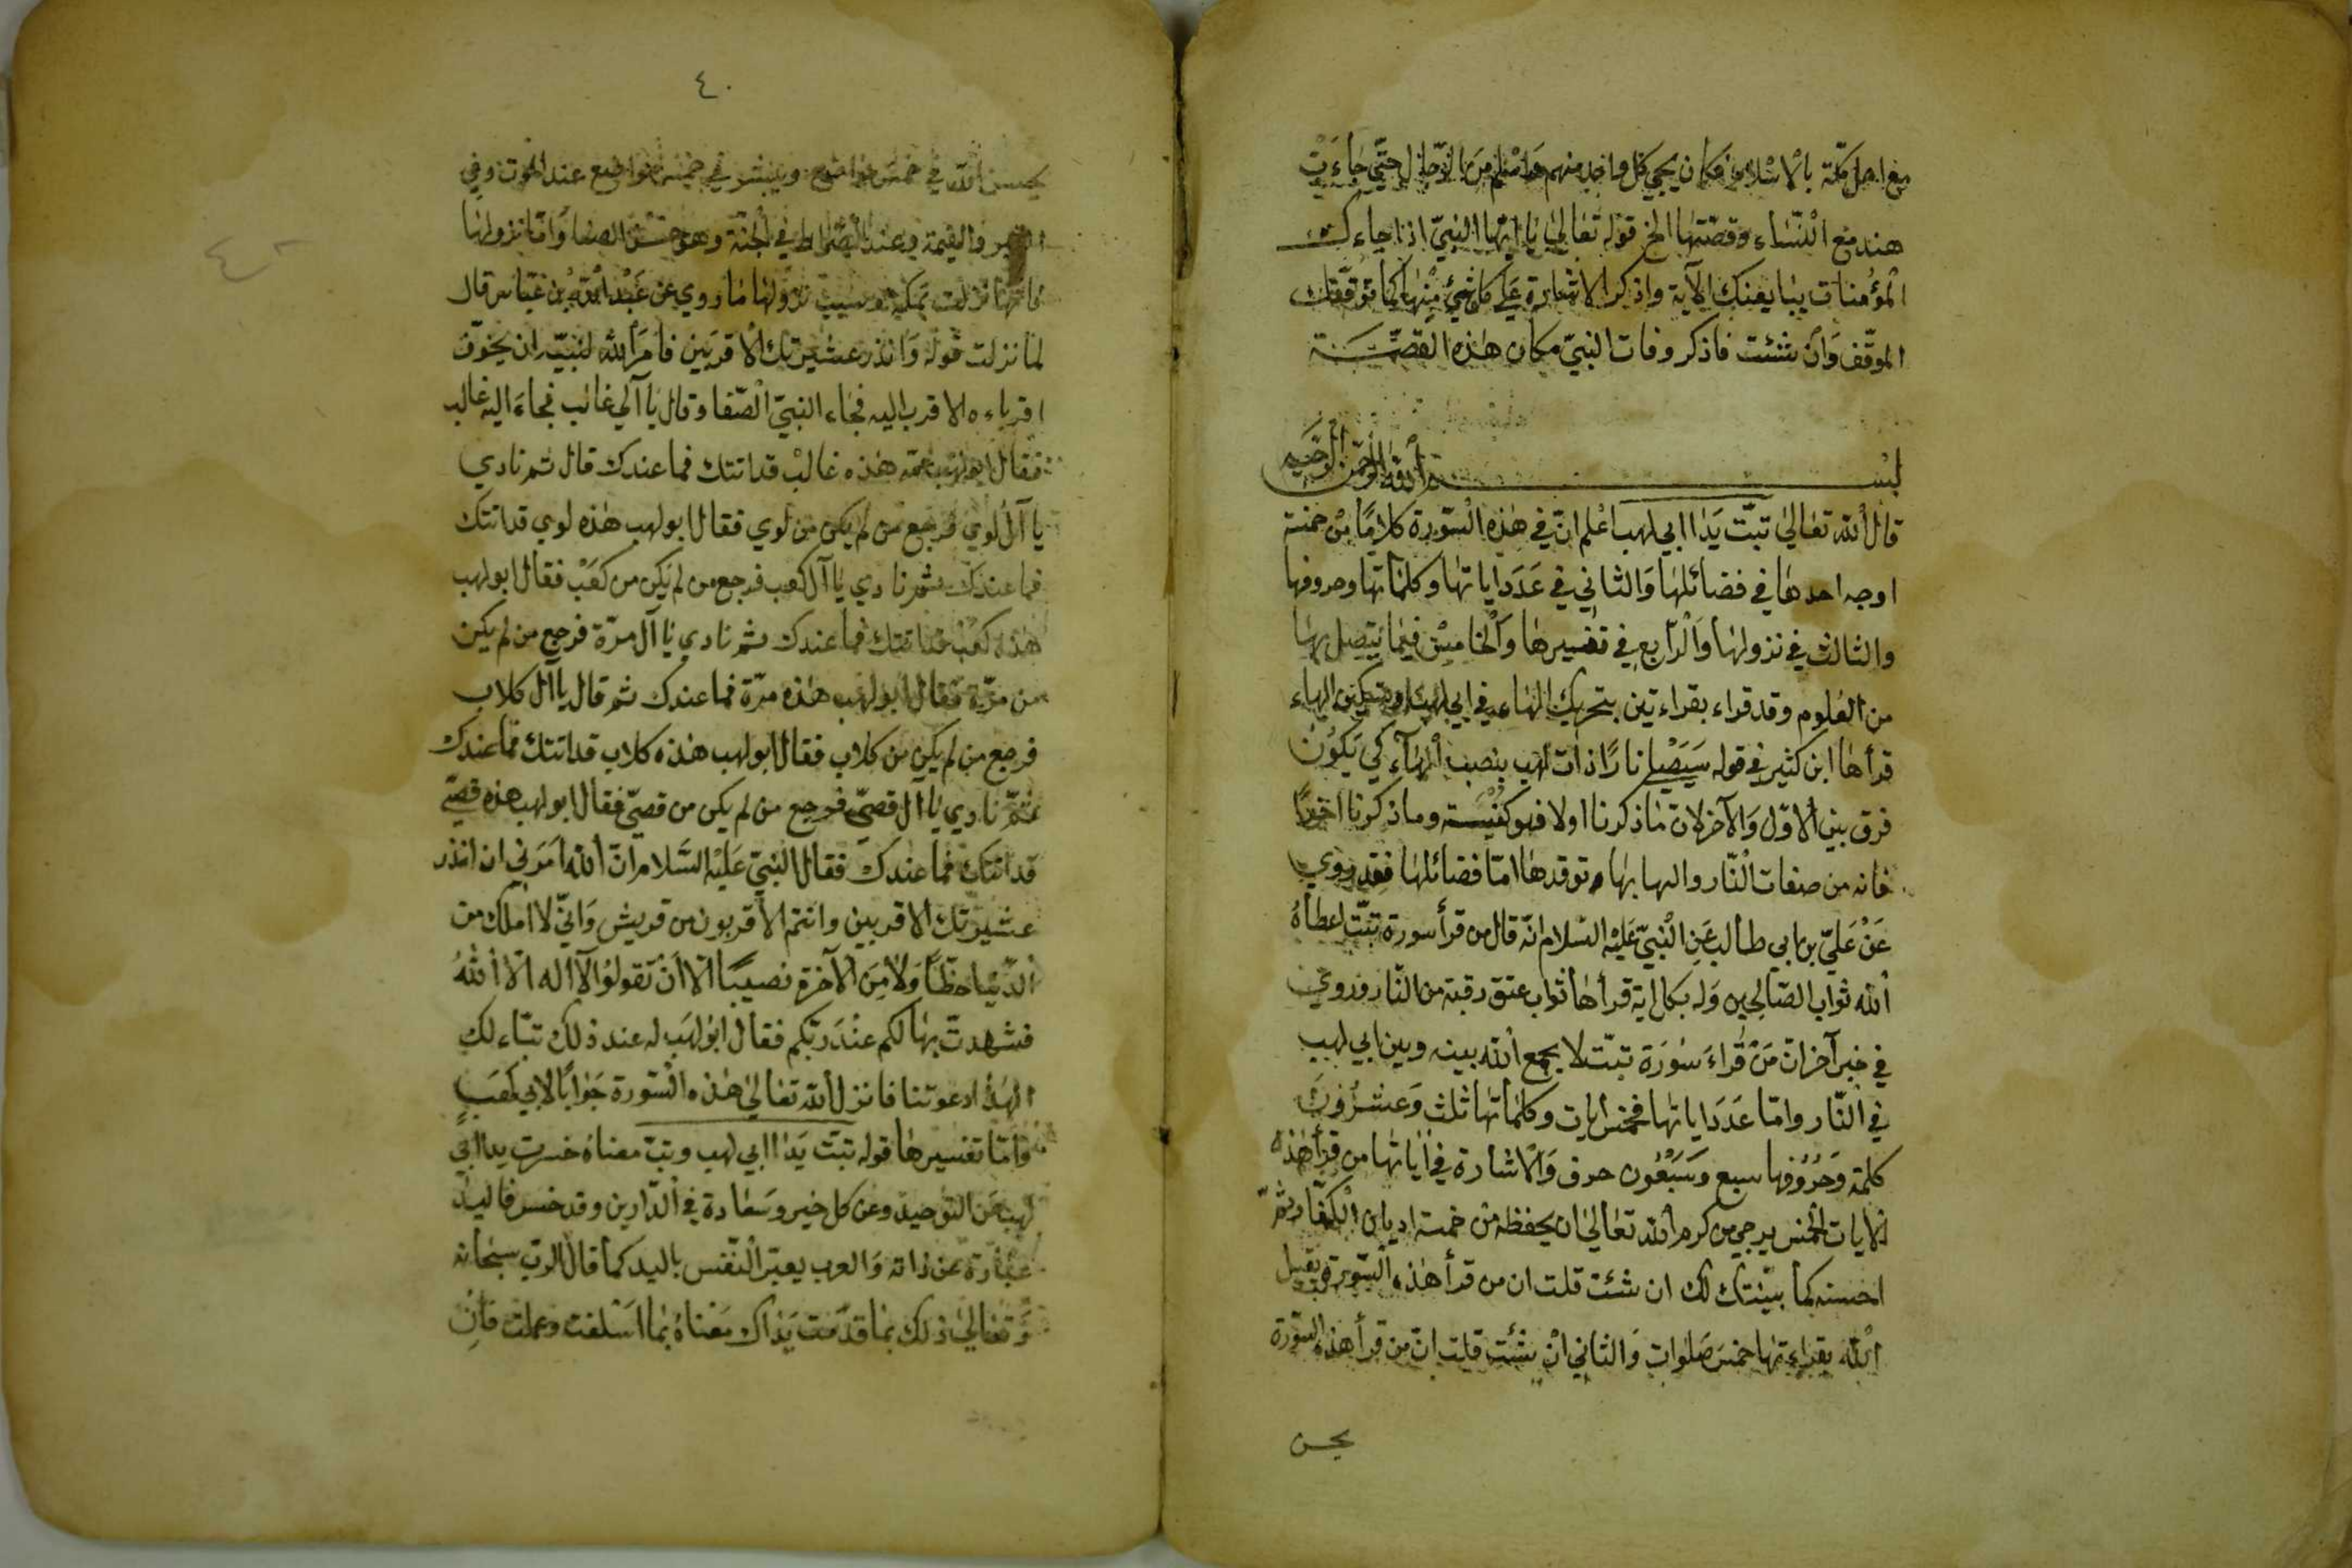 مع اهل مكّة بالاسلام فكان يجئ كل واحد منهم واسلم من الرّجال حتّى جاءت
هند مع النّساء وقصّتها الخ قوله تعالى يا ايّها النبيّ اذا جاءك
المؤمنات يبايعنك الآية واذكر الاشارة على كل شئ منها كما توفّقك
الموفّق وان شئت فاذكر وفات النبيّ مكان هذه القصّة
بسم الله الرّحمن الرّحيم
قال الله تعالى تبّت يدا ابي لهب اعلم انّ في هذه السّورة كلامًا من خمسة
اوجه احدها في فضائلها والثاني في عدد اياتها وكلماتها وحروفها
والثالث في نزولها والرّابع في تفسيرها والخامس فيما يتّصل بها
من العلوم وقد قراء بقراءتين بتحريك الهاء في ابي لهب وتسكين الهاء
قرأها ابن كثير في قوله سيصلى نارًا ذات لهب بنصب الهاء كي يكون
فرق بين الاوّل والآخر لان ما ذكرنا اولا فهو كنية وما ذكرنا اخرًا
فانه من صفات النّار والهابها وتوقدها امّا فضائلها فقد روي
عن عليّ بن ابي طالب عن النبيّ عليه السّلام انّه قال من قرأ سورة تبّت اعطاه
الله ثواب الصّالحين وله بكل اية قرأها ثواب عتق رقبة من النّار وروي
في خبر آخر انّ من قراء سورة تبّت لا يجمع الله بينه وبين ابي لهب
في النّار وامّا عدد اياتها فخمس ايات وكلماتها ثلث وعشرون
كلمة وحروفها سبع وسبعون حرف والاشارة في اياتها من قرأ هذه
الايات الخمس يرجى من كرم الله تعالى ان يحفظه من خمسة اديان الكفّار ثمّ
احسنه كما بيّنتك لك ان شئت قلت ان من قرأ هذه السّورة يقبل
الله بقراءتها خمس صلوات والثاني ان شئت قلت انّ من قرأ هذه السّورة
يحسن
٤٠
يحسن الله في خمس مواضع ويبشر في خمس مواضع عند الموت وفي
القبر والقيمة وعند الصّراط في الجنة وامّا نزولها
فانّها نزلت بمكّة وسبب نزولها ما روي عن عبد الله بن عبّاس قال
لما نزلت قوله وانذر عشيرتك الاقربين فامر الله لنبيّه ان يخوّف
اقرباءه الاقرب اليه فجاء النبيّ الصّفا وقال يا آلي غالب فجاء اليه غالب
فقال ابو لهب عمّه هذه غالب قد اتتك فما عندك قال ثم نادي
يا آل لوي فرجع من لم يكن من لوي فقال ابو لهب هذه لوي قد اتتك
فما عندك ثمّ نادي يا آل كعب فرجع من لم يكن من كعب فقال ابو لهب
هذه كعب قد اتتك فما عندك ثم نادي يا آل مرّة فرجع من لم يكن
من مرّة فقال ابو لهب هذه مرّة فما عندك ثم قال يا آل كلاب
فرجع من لم يكن من كلاب فقال ابو لهب هذه كلاب قد اتتك فما عندك
ثمّ نادي يا آل قصيّ فرجع من لم يكن من قصيّ فقال ابو لهب هذه قصيّ
قد اتتك فما عندك فقال النبيّ عليه السّلام انّ الله امرني ان انذر
عشيرتك الاقربين وانتم الاقربون من قريش وانيّ لا املك من
الدّنيا حظّا ولا من الآخرة نصيبًا الّا ان تقولوا لآ اله الّا الله
فشهدت بها لكم عند ربّكم فقال ابو لهب له عند ذلك تبّاء لك
الهذا دعوتنا فانزل الله تعالى هذه السّورة جوابًا لابي كعب
وامّا تفسيرها قوله تبّت يدا ابي لهب وتبّ معناه خسرت يدا ابي
لهب عن التّوحيد وعن كل خير وسعادة في الدّارين وقد خسر فاليد
عبارة عن ذاته والعرب يعبّر النّفس باليد كما قال الربّ سبحانه
وتعالى ذلك بما قدّمت يداك معناه بما اسلفت وعملت فان